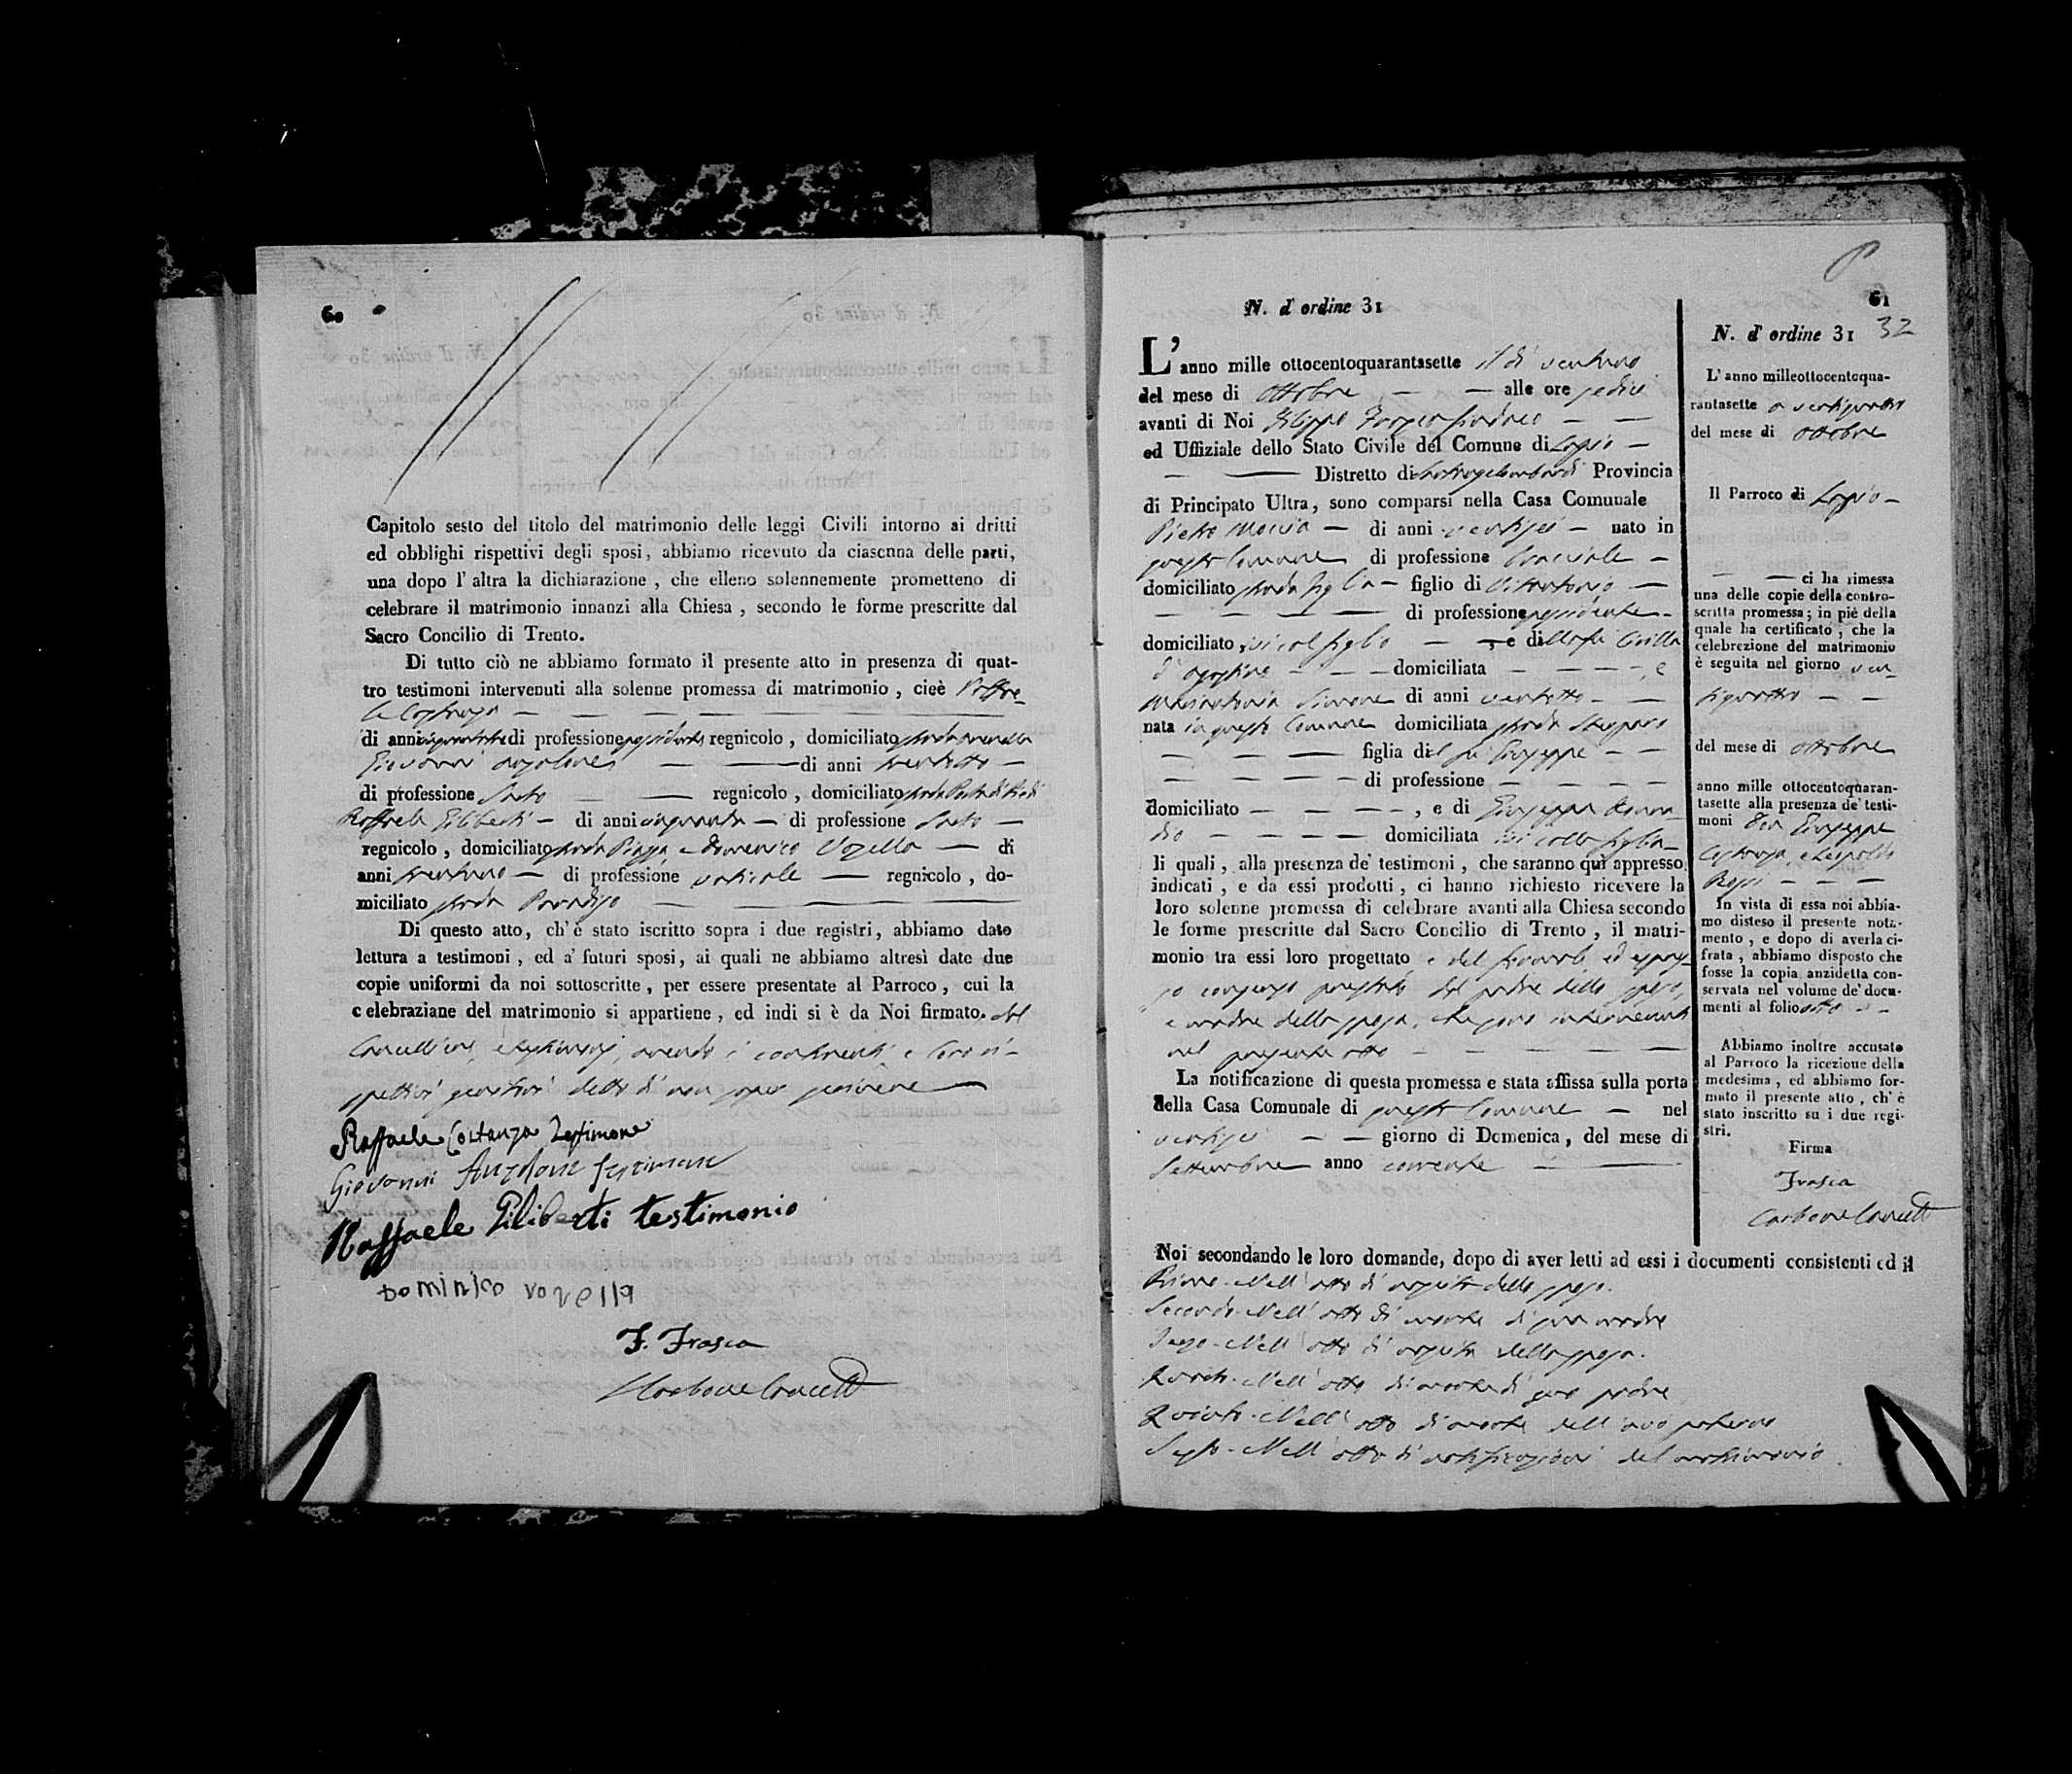 60
Capitolo sesto del titolo del matrimonio delle leggi Civili intorno ai dritti
ed obblighi rispettivi degli sposi, abbiamo ricevuto da ciascnna delle parti,
una dopo l'altra la dichiarazione, che elleno solennemente prometteno di
celebrare il matrimonio innanzi alla Chiesa, secondo le forme prescritte dal
Sacro Concilio di Trento.
Di tutto ciò ne abbiamo formato il presente atto in presenza di quat-
tro testimoni intervenuti alla solenne promessa di matrimonio, cieè Raffae-
le Costanza
di anni di professione possidente regnicolo, domiciliato strada
Giovanni di anni trentotto
di professione Sarto regnicolo, domiciliato strada
Raffaele Giliberti di anni cinquanta di professione Sarto
regnicolo, domiciliato strada Piazza e Domenico Vozella di
anni trentuno di professione regnicolo, do-
miciliato strada Paradiso
Di questo atto, ch'è stato iscritto sopra i due registri, abbiamo dato
lettura a testimoni, ed a' futuri sposi, ai quali ne abbiamo altresì date due
copie uniformi da noi sottoscritte, per essere presentate al Parroco, cui la
celebraziane del matrimonio si appartiene, ed indi si è da Noi firmato. dal
Cancelliere, e testimonj, avendo i contraenti e loro ri-
spettivi genitori detto di non saper scrivere
Raffaele Costanza Testimone
Giovanni Testimone
Raffaele Giliberti testimonio
Dominico vozella
F. Frasca
Carbone Cancell
61
32
N. d'ordine 31
L'anno mille ottocentoquarantasette il dì ventuno
del mese di Ottobre alle ore sedici
avanti di Noi Filippo Frasca Sindaco
ed Uffiziale dello Stato Civile del Comune di Lapio
Distretto di Santangelo Lombardi Provincia
di Principato Ultra, sono comparsi nella Casa Comunale
Pietro di anni ventisei nato in
questo Comune di professione bracciale
domiciliato strada figlio di Vitantonio
di professione possidente
domiciliato ivi col figlio e di
domiciliata e
Mariantonia Simone di anni ventotto
nata in questo Comune domiciliata strada
figlia del fu Giuseppe
di professione
domiciliato , e di Giuseppa
domiciliata ivi colla figlia
li quali, alla presenza de' testimoni, che saranno qui appresso
indicati, e da essi prodotti, ci hanno richiesto ricevere la
loro solenne promessa di celebrare avanti alla Chiesa secondo
le forme prescritte dal Sacro Concilio di Trento, il matri-
monio tra essi loro progettato e del formale ed espres-
so consenso prestato dal padre dello sposo,
e madre della sposa, che sono intervenuti
nel presente atto
La notificazione di questa promessa e stata affissa sulla porta
della Casa Comunale di questo Comune nel
ventisei giorno di Domenica, del mese di
Settembre anno corrente
N. d'ordine 31
L'anno milleottocentoqua-
rantasette a ventiquattro
del mese di Ottobre
Il Parroco di Lapio
ci ha rimessa
una delle copie della contro-
scritta promessa; in piè della
quale ha certificato, che la
celebrezione del matrimonio
è seguita nel giorno ven-
tiquattro
del mese di Ottobre
anno mille ottocentoquaran-
tasette alla presenza de' testi-
moni Don Giuseppe
Costanza, e Leopoldo
Rossi
In vista di essa noi abbia-
mo disteso il presente nota-
mento, e dopo di averla ci-
frata, abbiamo disposto che
fosse la copia anzidetta con-
servata nel volume de' docu-
menti al folio otto
Abbiamo inoltre accusato
al Parroco la ricezione della
medesima, ed abbiamo for-
mato il presente atto, ch'è
stato inscritto su i due regi-
stri.
Firma
Frasca
Carbone Cancell
Noi secondando le loro domande, dopo di aver letti ad essi i documenti consistenti ed il
Primo. Nell'atto di nascita dello sposo.
Secondo. Nell'atto di morte di sua madre
Terzo. Nell'atto di nascita della sposa.
Quarto. Nell'atto di morte di suo padre
Quinto. Nell'atto di morte dell'avo paterno
Sesto. Nell'atto di notificazione del matrimonio.